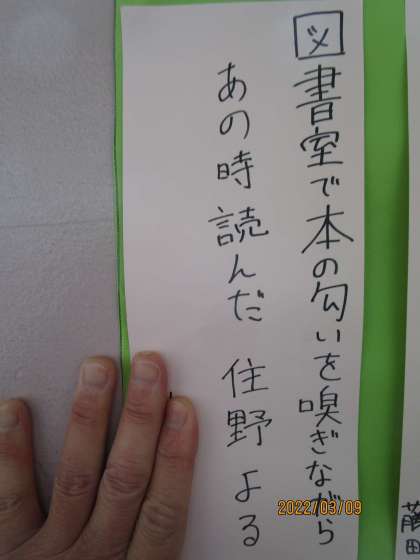 図書室で本の匂いを嗅ぎながら
あの時読んだ 住野よる
2022/03/09